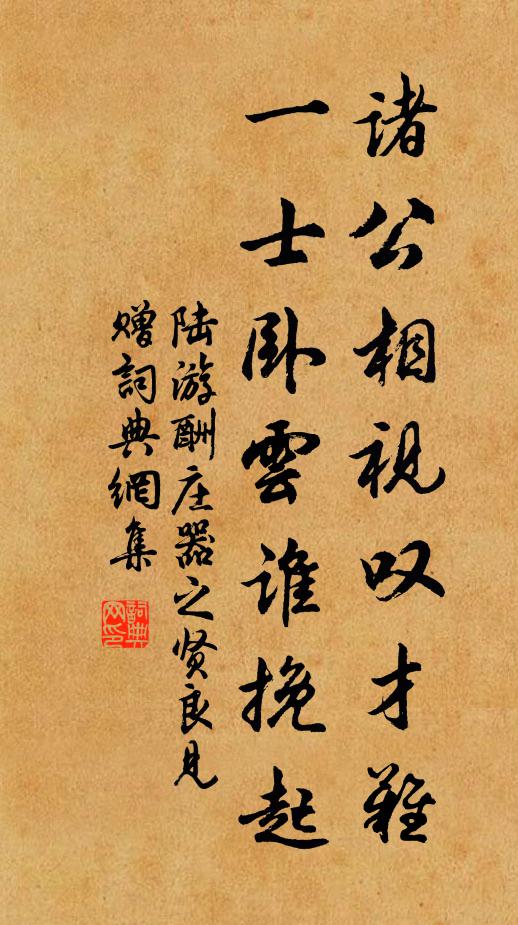 诸公相视叹才难
一士卧雲谁挽起
陆游酬庄器之贤良见
赠詞典網集
詞典
网印